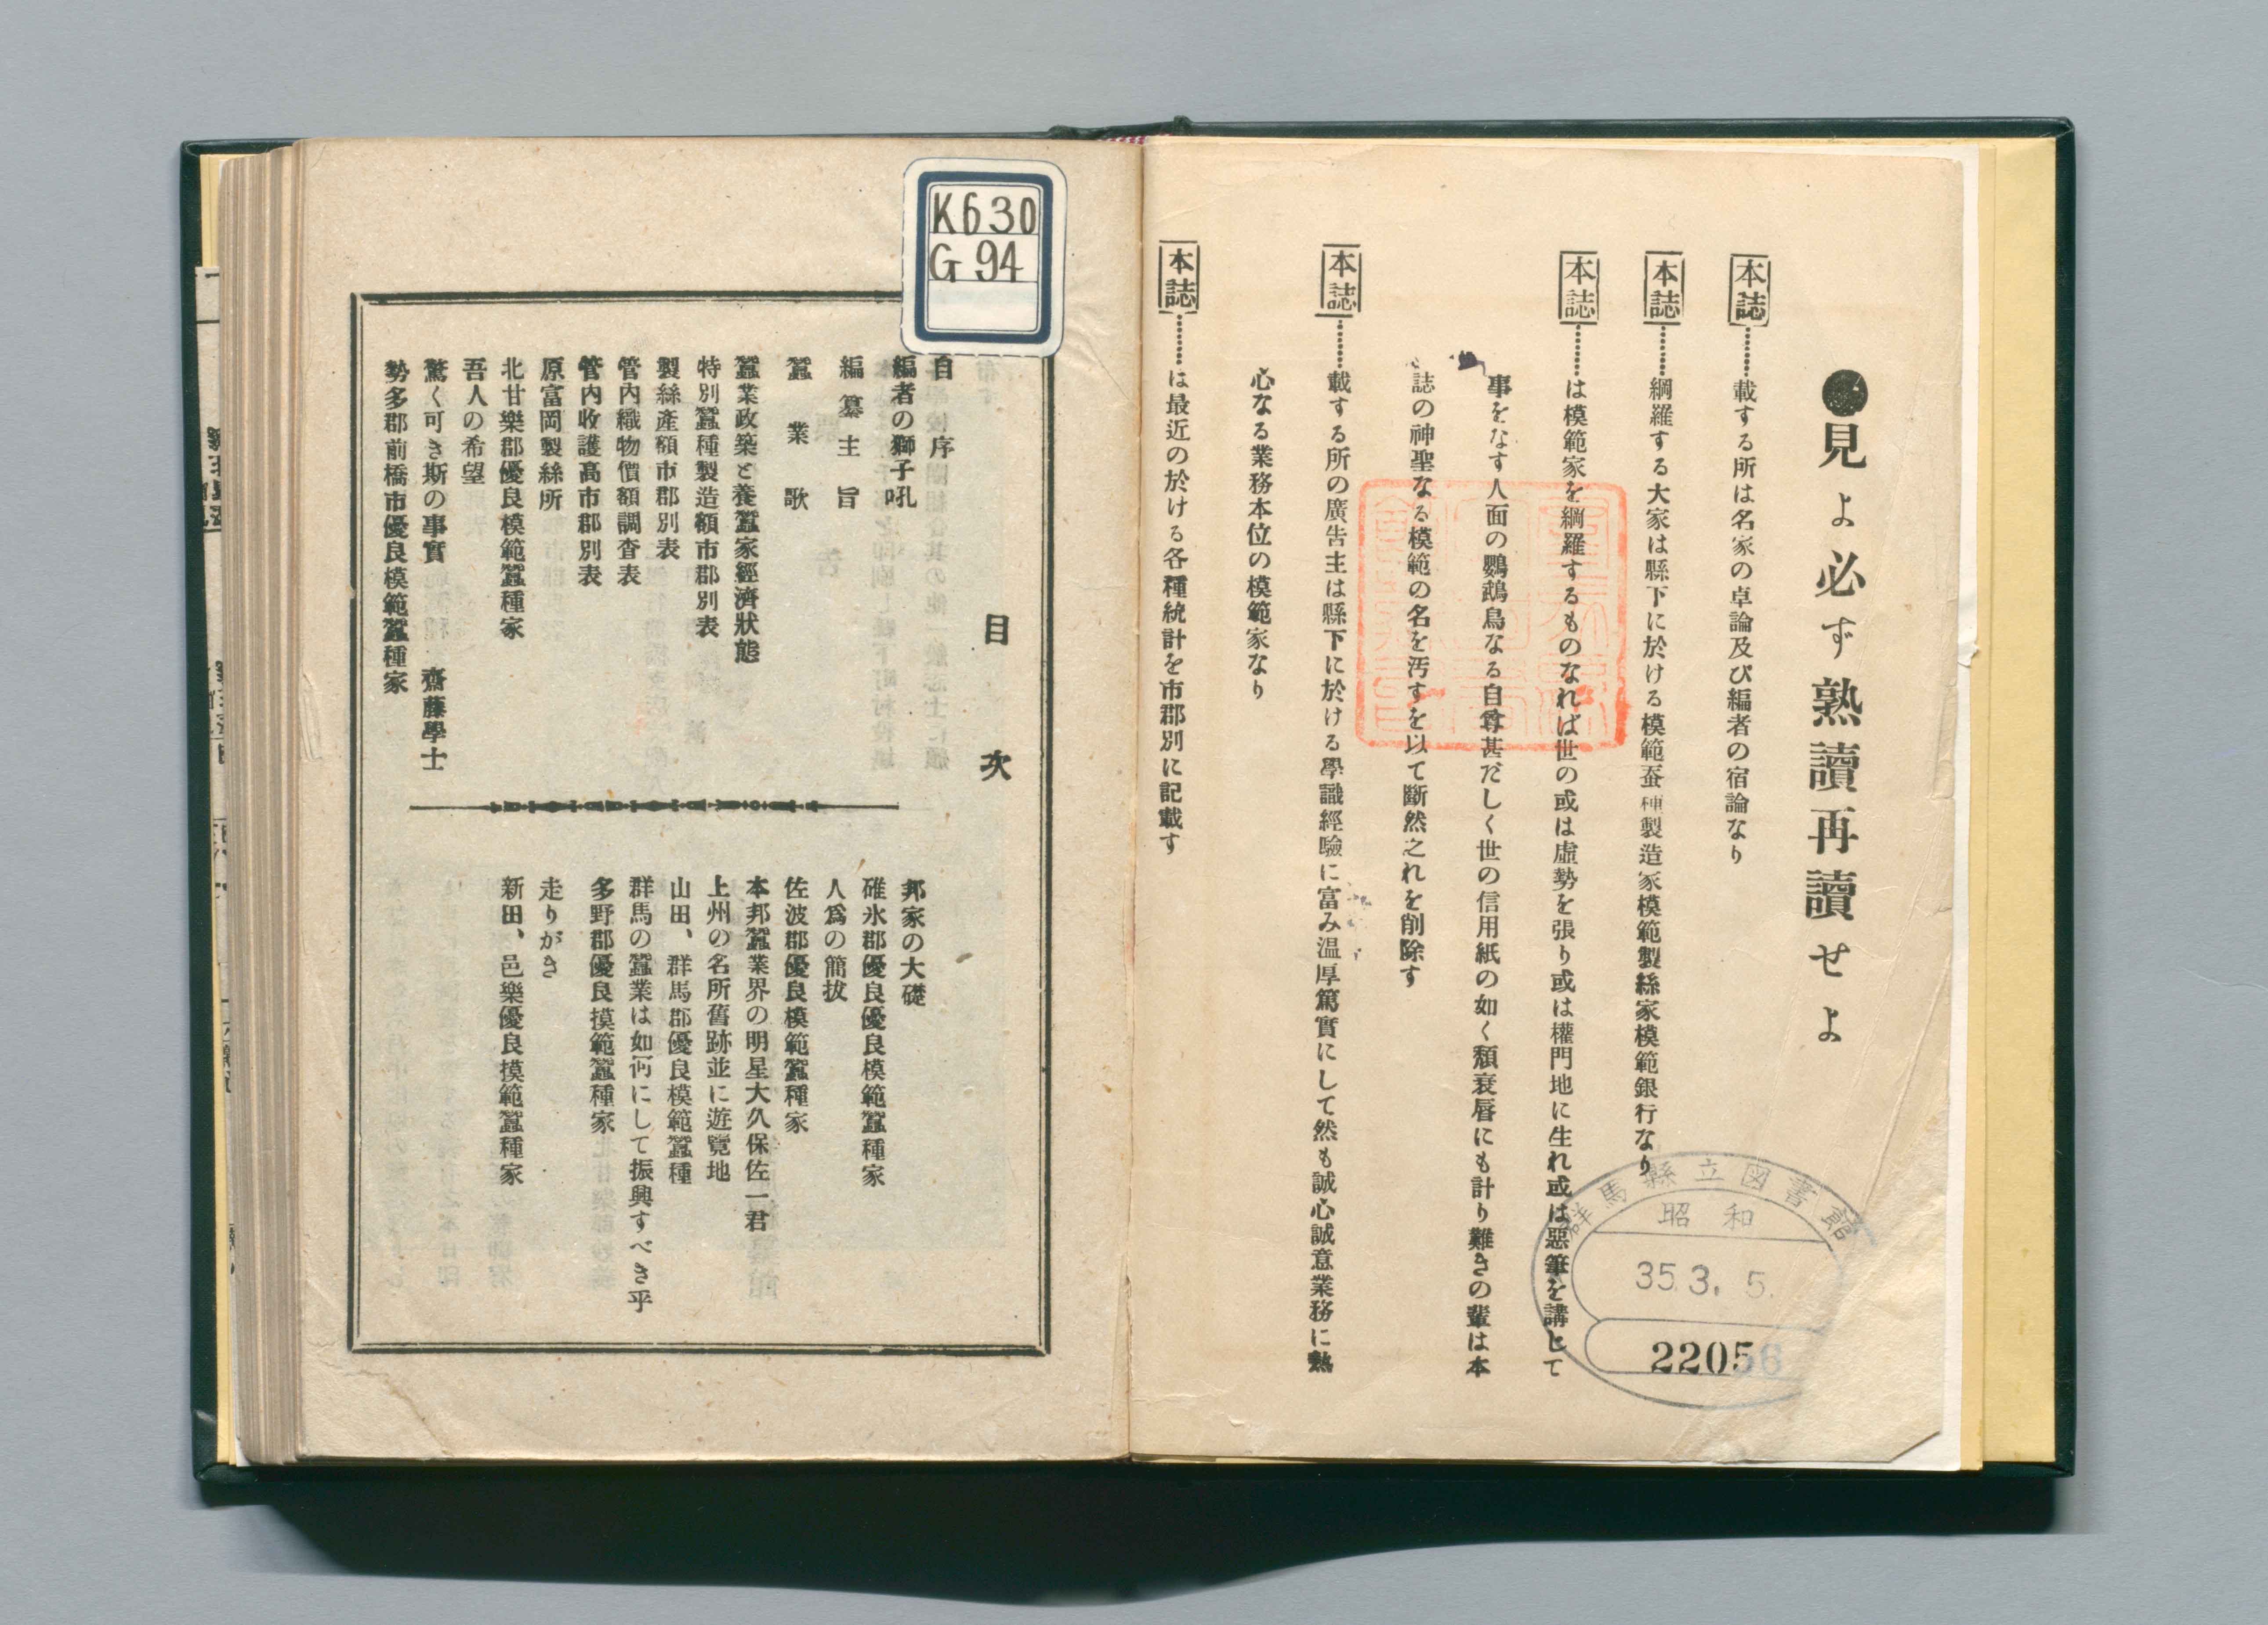 ●見よ必ず熟讀再讀せよ
本誌………載する所は名家の卓論及び編者の宿論なり
本誌………綱羅する大家は縣下に於ける模範蚕種製造家模範製絲家模範銀行なり
本誌………は模範家を綱羅するものなれば世の或は虛勢を張り或は權門地に生れ或は惡筆を講じて
事をなす人面の鸚鵡鳥なる自尊甚だしく世の信用紙の如く頽衰唇にも計り難きの輩は本
誌の神聖なる模範の名を汚すを以て斷然之れを削除す
本誌………載する所の廣告主は縣下に於ける學識經驗に富み温厚篤實にして然も誠心誠意業務に熱
心なる業務本位の模範家なり
本誌………は最近の於ける各種統計を市郡別に記載す
群馬縣立図書館
昭和
35.3.5.
22056
K630
G94
目次
自序
編者の獅子吼
編纂主旨
蠶業歌
蠶業政築と養蠶家經濟狀態
特別蠶種製造額市郡別表
製絲產額市郡別表
管內織物價額調査表
管內收護高市郡別表
原富岡製絲所
北甘樂郡優良模範蠶種家
吾人の希望
驚く可き斯の事實 齋藤學士
勢多郡前橋市優良模範蠶種家
邦家の大礎
碓氷郡優良優良模範蠶種家
人爲の簡拔
佐波郡優良模範蠶種家
本邦蠶業界の明星大久保佐一君
上州の名所舊跡並に遊覽地
山田、群馬郡優良模範蠶種
群馬の蠶業は如何にして振興すべき乎
多野郡優良摸範蠶種家
走りがき
新田、邑樂優良摸範蠶種家